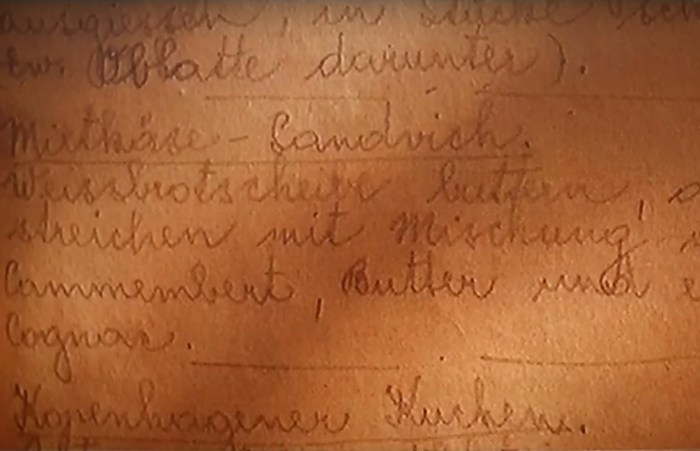 ausgiessen, in Stücke
Oblatte darunter).
Mixtkäse - Sandvich.
Weissbrotscheibe buttern,
streichen mit Mischung
Cammembert, Butter und
Cognac.
Kopenhagener Kuchen.